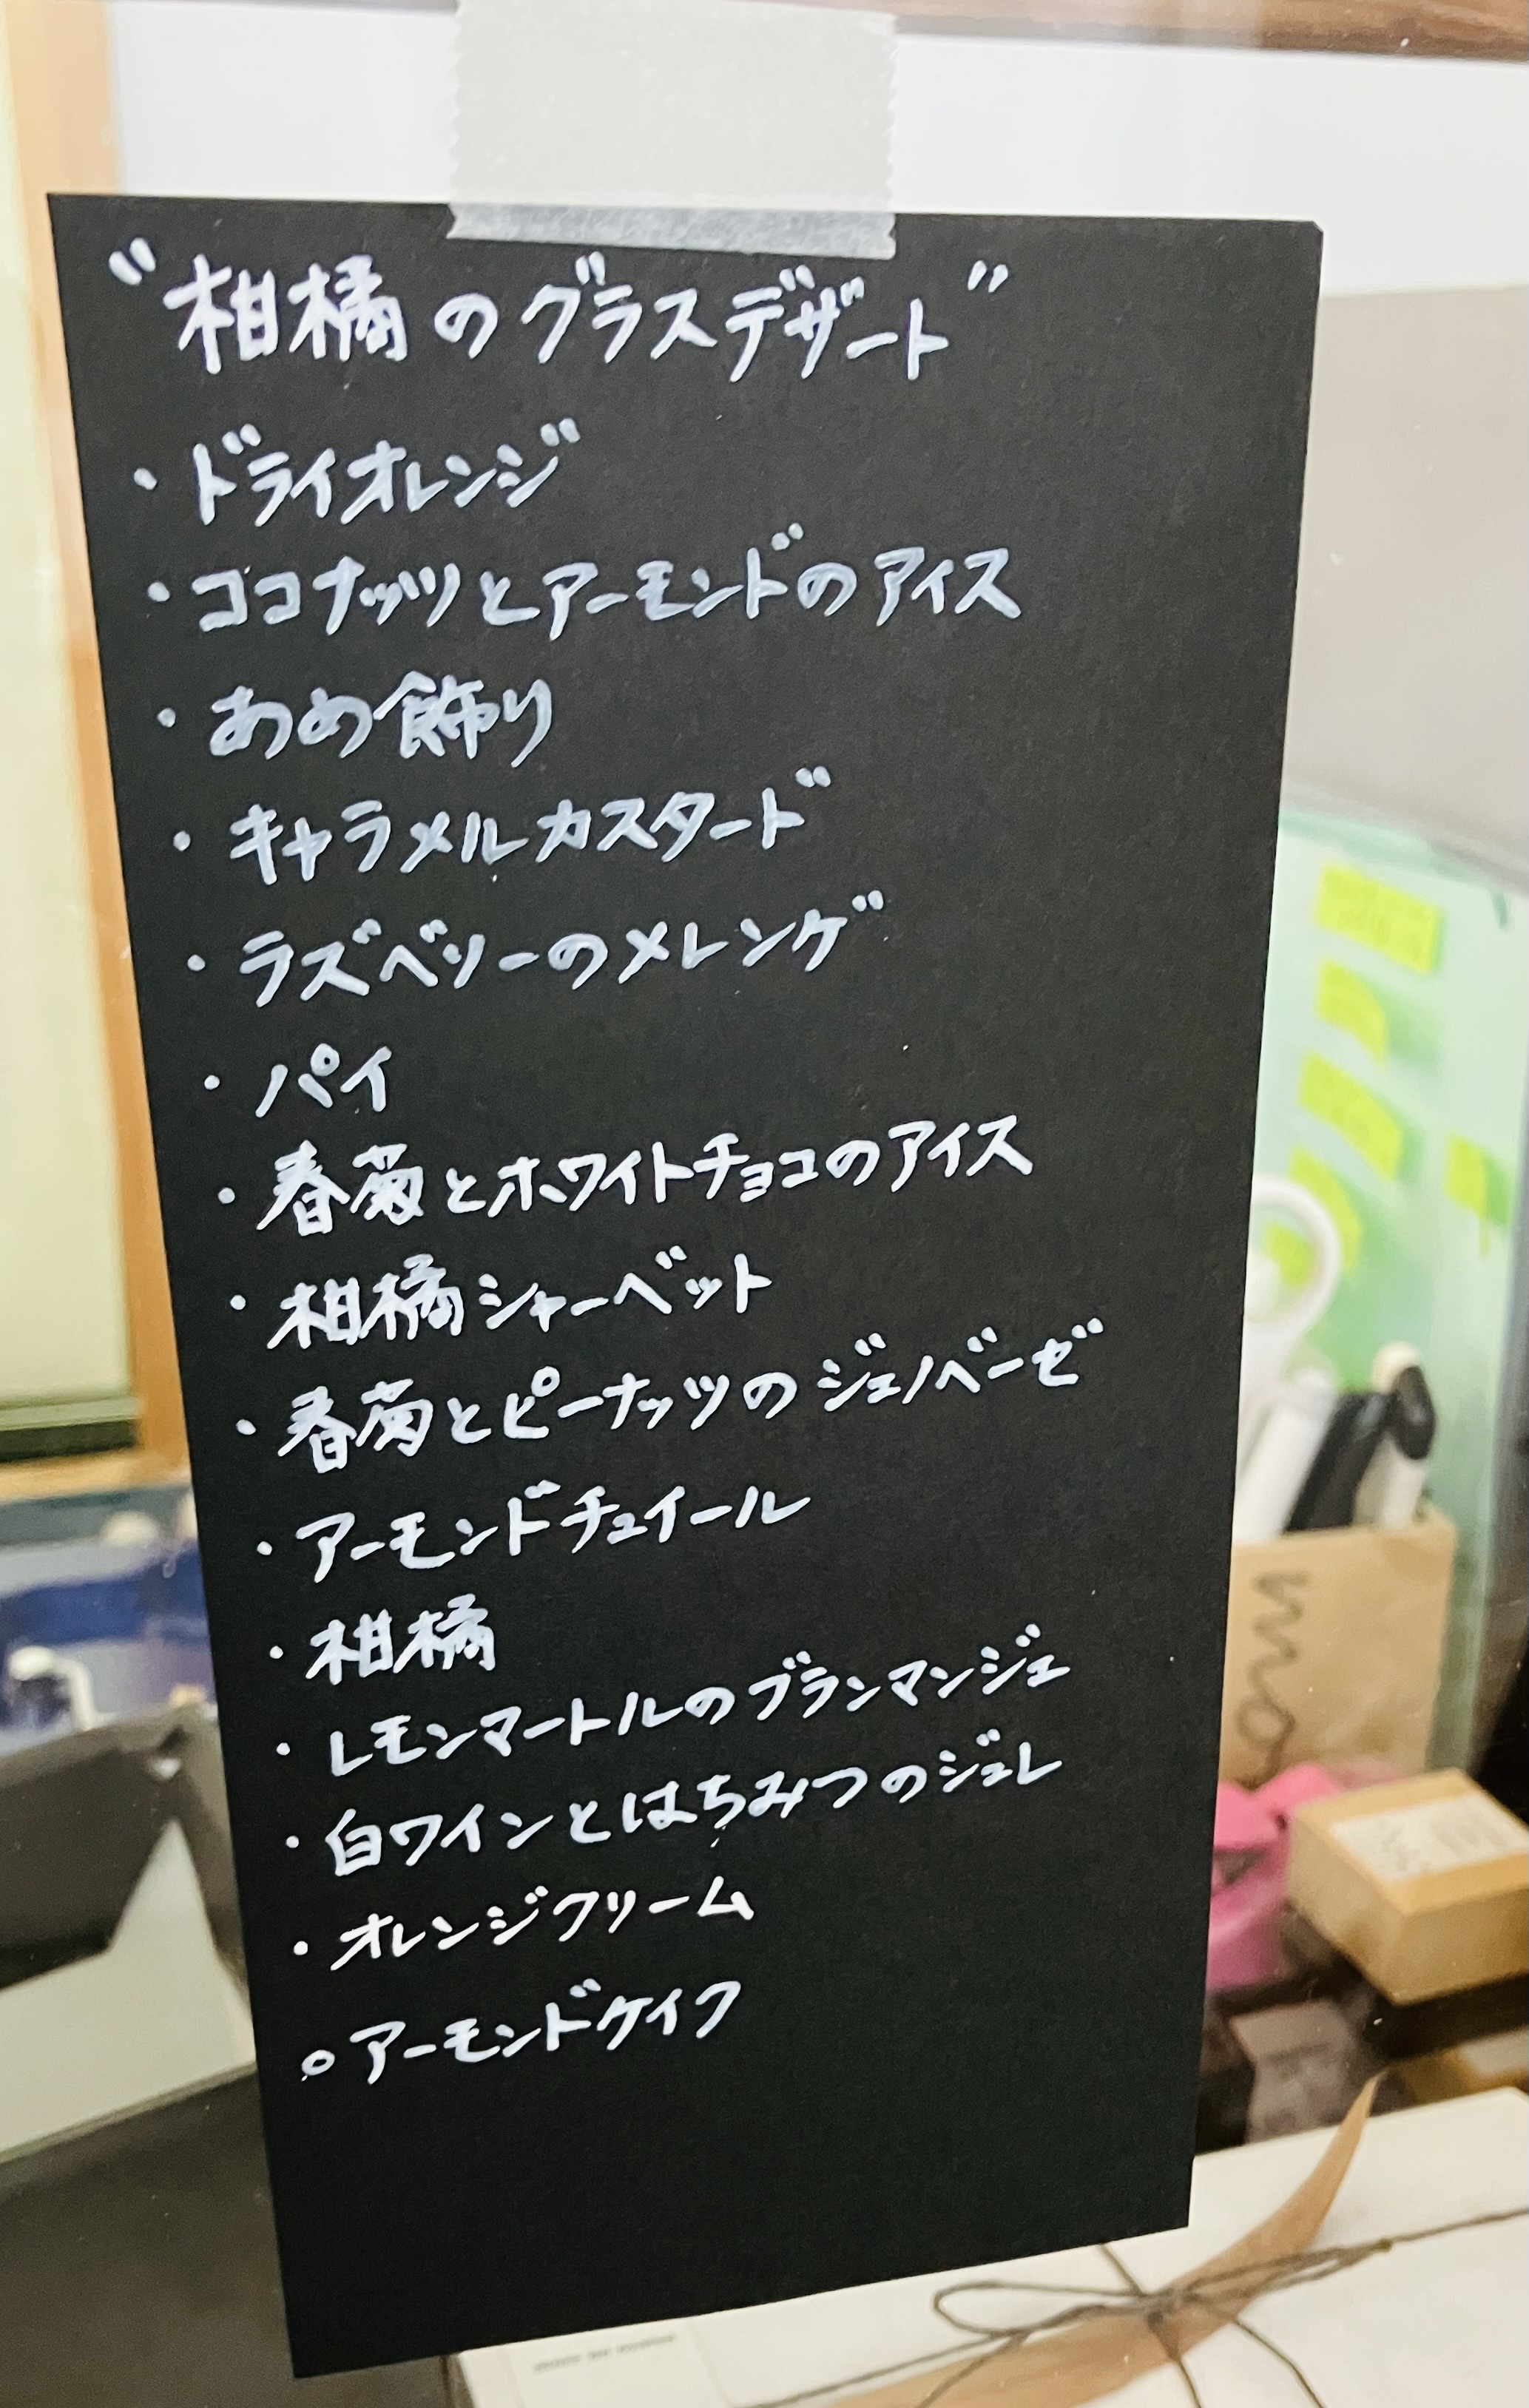 “柑橘のグラスデザート”
・ドライオレンジ
・ココナッツとアーモンドのアイス
・あめ飾り
・キャラメルカスタード
・ラズベリーのメレンゲ
・パイ
・春菊とホワイトチョコのアイス
・柑橘シャーベット
・春菊とピーナッツのジェノベーゼ
・アーモンドチュイール
・柑橘
・レモンマートルのブランマンジェ
・白ワインとはちみつのジュレ
・オレンジクリーム
○アーモンドケイク